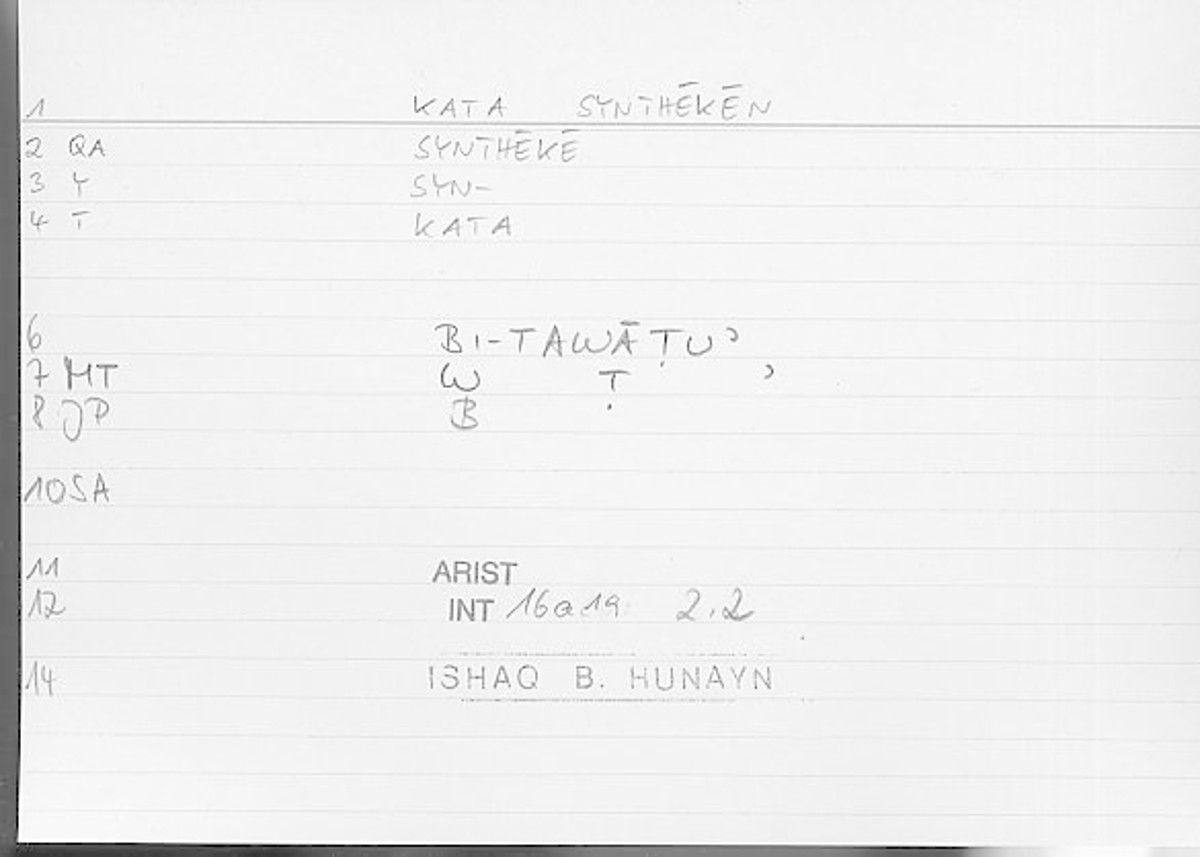 1 KATA SYNTHĒKĒN
2 QA SYNTHĒKĒ
3 Y SYN-
4 T KATA
6 BI-TAWĀṬUʾ
7 MT W Ṭ ʾ
8 JP B
10 SA
11 ARIST
12 INT 16a19 2.2
14 ISHAQ B. HUNAYN